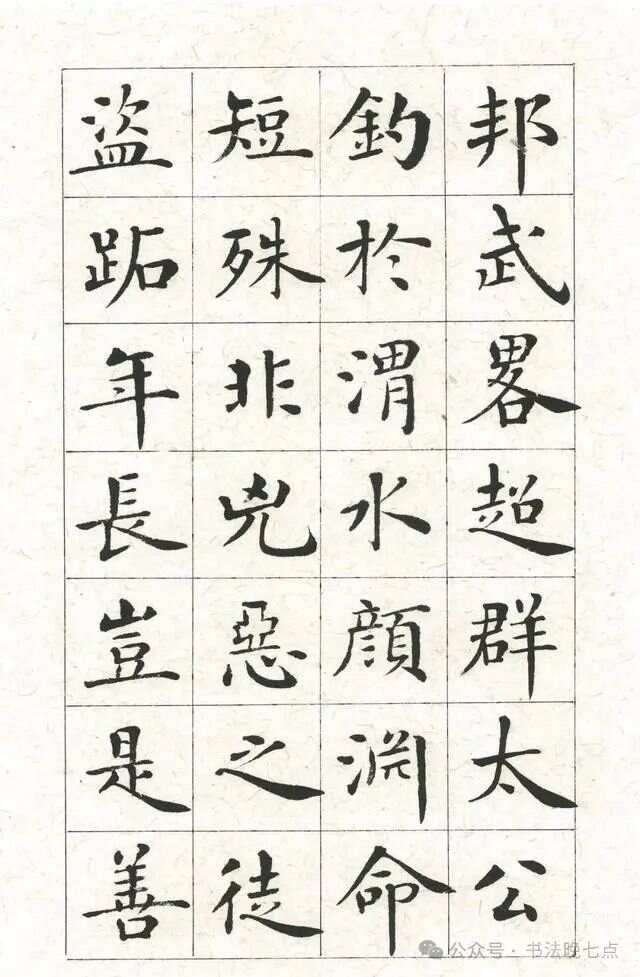 邦武畧超群太公
釣於渭水顔淵命
短殊非兇惡之徒
盜跖年長豈是善
公众号·书法晚七点